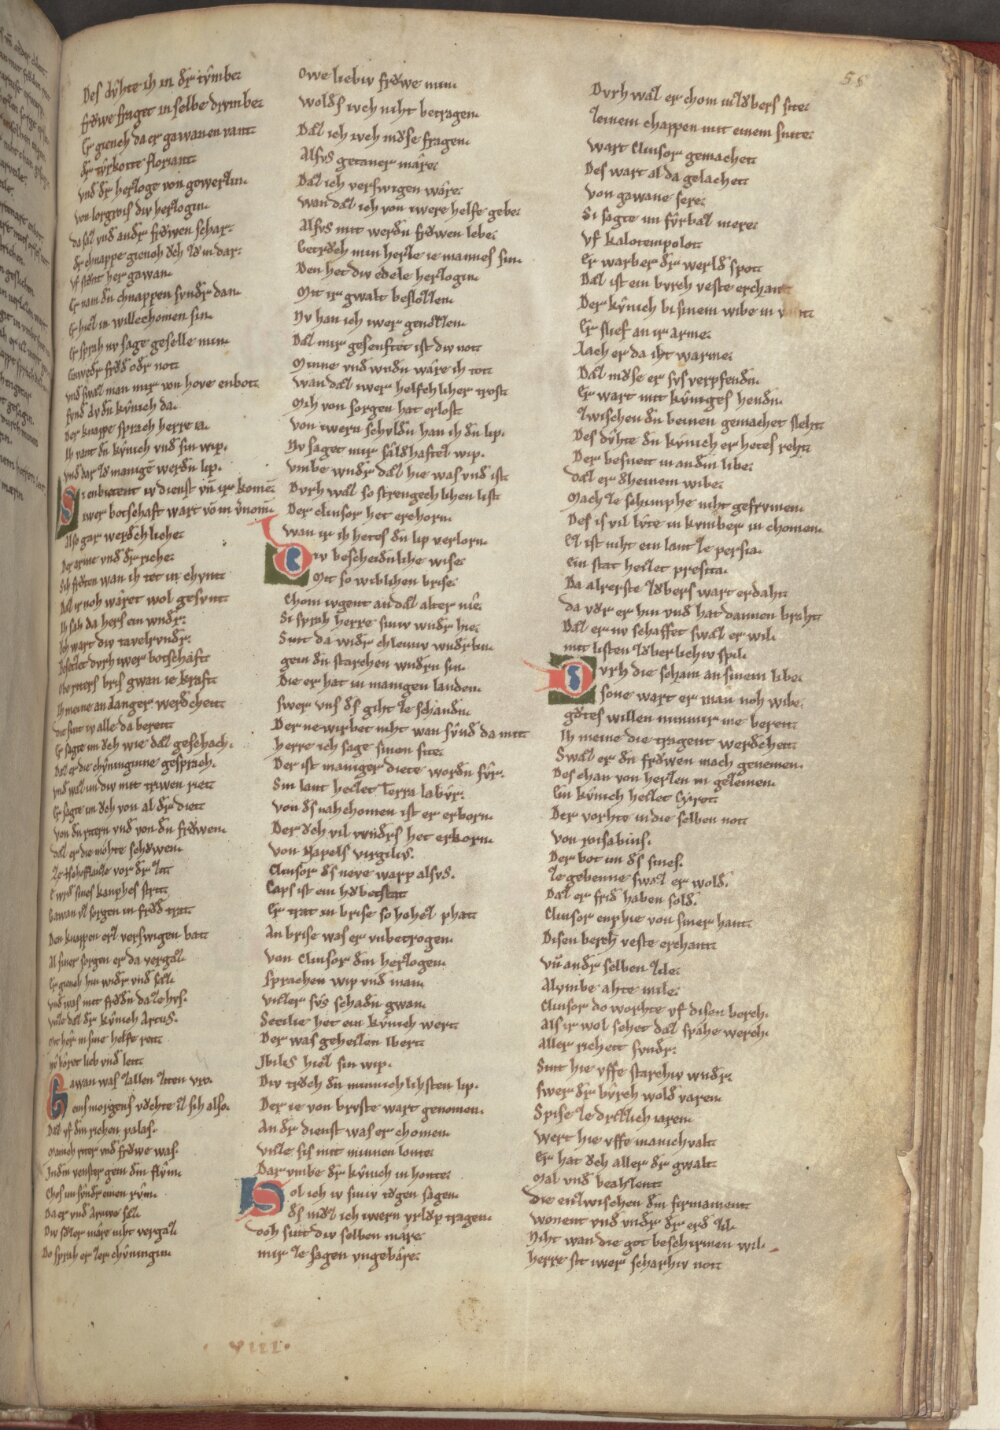 58
Des dvhte ih in dr tvmber
frowe fragt in selbe drymber
Er giench da er gawanen vant
dr tvrkoite floriant
vnd dr herzoge von gowerzin
von logrois div herzogin
da saz vnd andr frowen schar
dr chnappe giench och zo in dar
vf stont her gawan
Er nam dn chnappen svndr dan
Er hiez in willechomen sin
Er sprah nv sage geselle min
Eintwedr frod odr not
vnd swaz man mir von hove enbot
fvnd dv dn kvnich da
Der knappe sprach herre ia
Ih vant dn kvnich vnd sin wip
vnd dar zo manigē werdn lip
Si enbietent iv dienst vn̄ ir komen
iwer botschaft wart vō in vnomn
Also gar werdchliche
Der arme vnd dr riche
Sih froten wan ih tet in chvnt
Daz ir noh wæret wol gesvnt
Ih sah da hers ein wndr
Och wart div tavelrvndr
Besetzet dvrh iwer botschaft
Obe riters bris gwan ie kraft
Ih meine an langer werdchett
die sint iv alle da bereit
Er sagte im och wie daz geschach
Daz er die chvneginne gesprach
vnd waz im div mit triwen riet
Er sagte im och von al dr diet
Von dn ritern vnd von dn frowen
daz er die mohte schowen
Ze tschofflanze vor dr zit
E wrd sines kamphes strit
Gawans sorgen in frod trat
Den knappen erz verswigen bat
Al siner sorgen er da vergaz
Er giench hin widr vnd saz
vnd was mit frodn da ze hvs
vnze daz dr kvnich Artvs
mit her in sine helfe reit
nv horet lieb vnd leit
Gawan was zallen ziten vro
eins morgens vochte iz sih also
Daz vf dm richen palas
manich riter vnd frowe was
Indn venster gein dm flvm
Chos im svndr einen rvm
Da er vnd Arnive saz
Div seltzer mære niht vergaz
Do sprah er zer chvnngin
Owe liebiv frowe min
wolds iveh niht betragen
Daz ich iveh mose fragen
Alsvs getaner mære
Daz ich verswigen wære
wan daz ich von iwere helfe gebe
Alsvs mit werdn frowen lebe
Getroch min herze ie mannes sin
Den het div edele herzogin
Mit ir gwalt beslozzen
Nv han ich iwer genozzen
Daz mir gesenftet ist div not
Minne vnd wndn wære ih tot
wan daz iwer helfchlicher trost
Mih von sorgen hat erlost
Von iwern schvldn han ih dn lip
Nv saget mir sældhaftez wip
vmbe wndr daz hie was vnd ist
Dvrh waz so strengechlichen list
Der clinsor het erchorn
wan ir ih hetes dn lip verlorn
Div bescheidnliche wise
Mit so wiblichen brise
Chom ivgent an daz alter nie
Si sprah herre siniv wndr hie
Sint da widr chleiniv wndrlin
gein dn starchen wndrn sin
Die er hat in manigen landen
swer vns ds giht ze schandn
Der newirbet niht wan svnd da mit
Herre ich sage sinen site
Der ist maniger diete wordn svr
Sin lant heizet Terra labvr
Von ds nah chomen ist er erborn
Der och vil wndrs het erkorn
von Napels virgilivs
Clinsor ds neve warp alsvs
Caps ist ein hovbetstat
Er trat in brise so hohez phat
An brise was er vnbetrogen
van Clinsor dm herzogen
sprachen wip vnd man
vnzer svs schadn gwan
Secilie het ein kvnich wert
Der was geheizen Ibert
Iblis hiez sin wip
Div troch dn minnichlichsten lip
Der ie von brvste wart genomen
An dr dienst was er chomen
vnze sis mit minnen lonte
Dar vmbe dr kvnich in honte
Sol ich iv siniv tægen sagen
ds mvz ich iwern vrlop tragen
doh sint div selben mære
mir ze sagen vngebære
Dvrh waz er chom in zobers site
Zeinem chappen mit einem snite
wart Clinsor gemachet
Des wart al da gelachet
von gawane sere
Si sagte im fvrbaz mere
vf kalotempolot
Er warber dr werld spot
Daz ist ein bvrch veste erchant
Der kvnich bi sinem wibe in vant
Er slief an ir arme
Lach er da iht warme
Daz mose er svs verpfendn
Er wart mit kvniges hendn
zwischen dn beinen gemachet sleht
Des dvhte dn kvnich er hetes reht
Der besneit in an dm libe
daz er dheinem wibe
Mach ze schimphe niht gefrvmen
Des is vil lvte in kvmber in chomen
Ez ist niht ein lant ze persia
Ein stat heizet presita
Da alrerste zobers wart erdaht
da vor er hin vnd hat dannen braht
Daz er nv schaffet swaz er wil
mit listen zoberlichiv spil
Dvrh die scham an sinem libe
sone wart er man noh wibe
gotes willen nimmir me bereit
Ih meine die tragent werdcheit
Swaz er dn frowen mach genemen
Des chan von herzen in gezemen
Ein kvnich heizet Eyret
Der vorhte in die selben not
von rosabins
Der bot im ds sines
Ze gebenne swaz er wold
Daz er frid haben sold
Clinsor enphie von siner hant
Disen berch veste erchant
vn̄ an dr selben zile
Al vmbe ahte mile
Clinsor do worhte vf disen berch
Als ir wol sehet daz spæhe werch
Aller richeit svndr
Sint hie vffe starchiv wndr
swer dr bvrch wold varen
Spise ze drizzich iaren
wert hie vffe manichvalt
Er hat och aller dr gwalt
Mal vnd beahlent
die enzwischen dm firmament
wonent vnd vndr dr erd zil
Niht wan die got beschirmen wil
Herre sit iwer scharhiv not
VIII